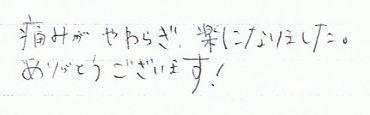 痛みが やわらぎ、楽になりました。
ありがとうございます!